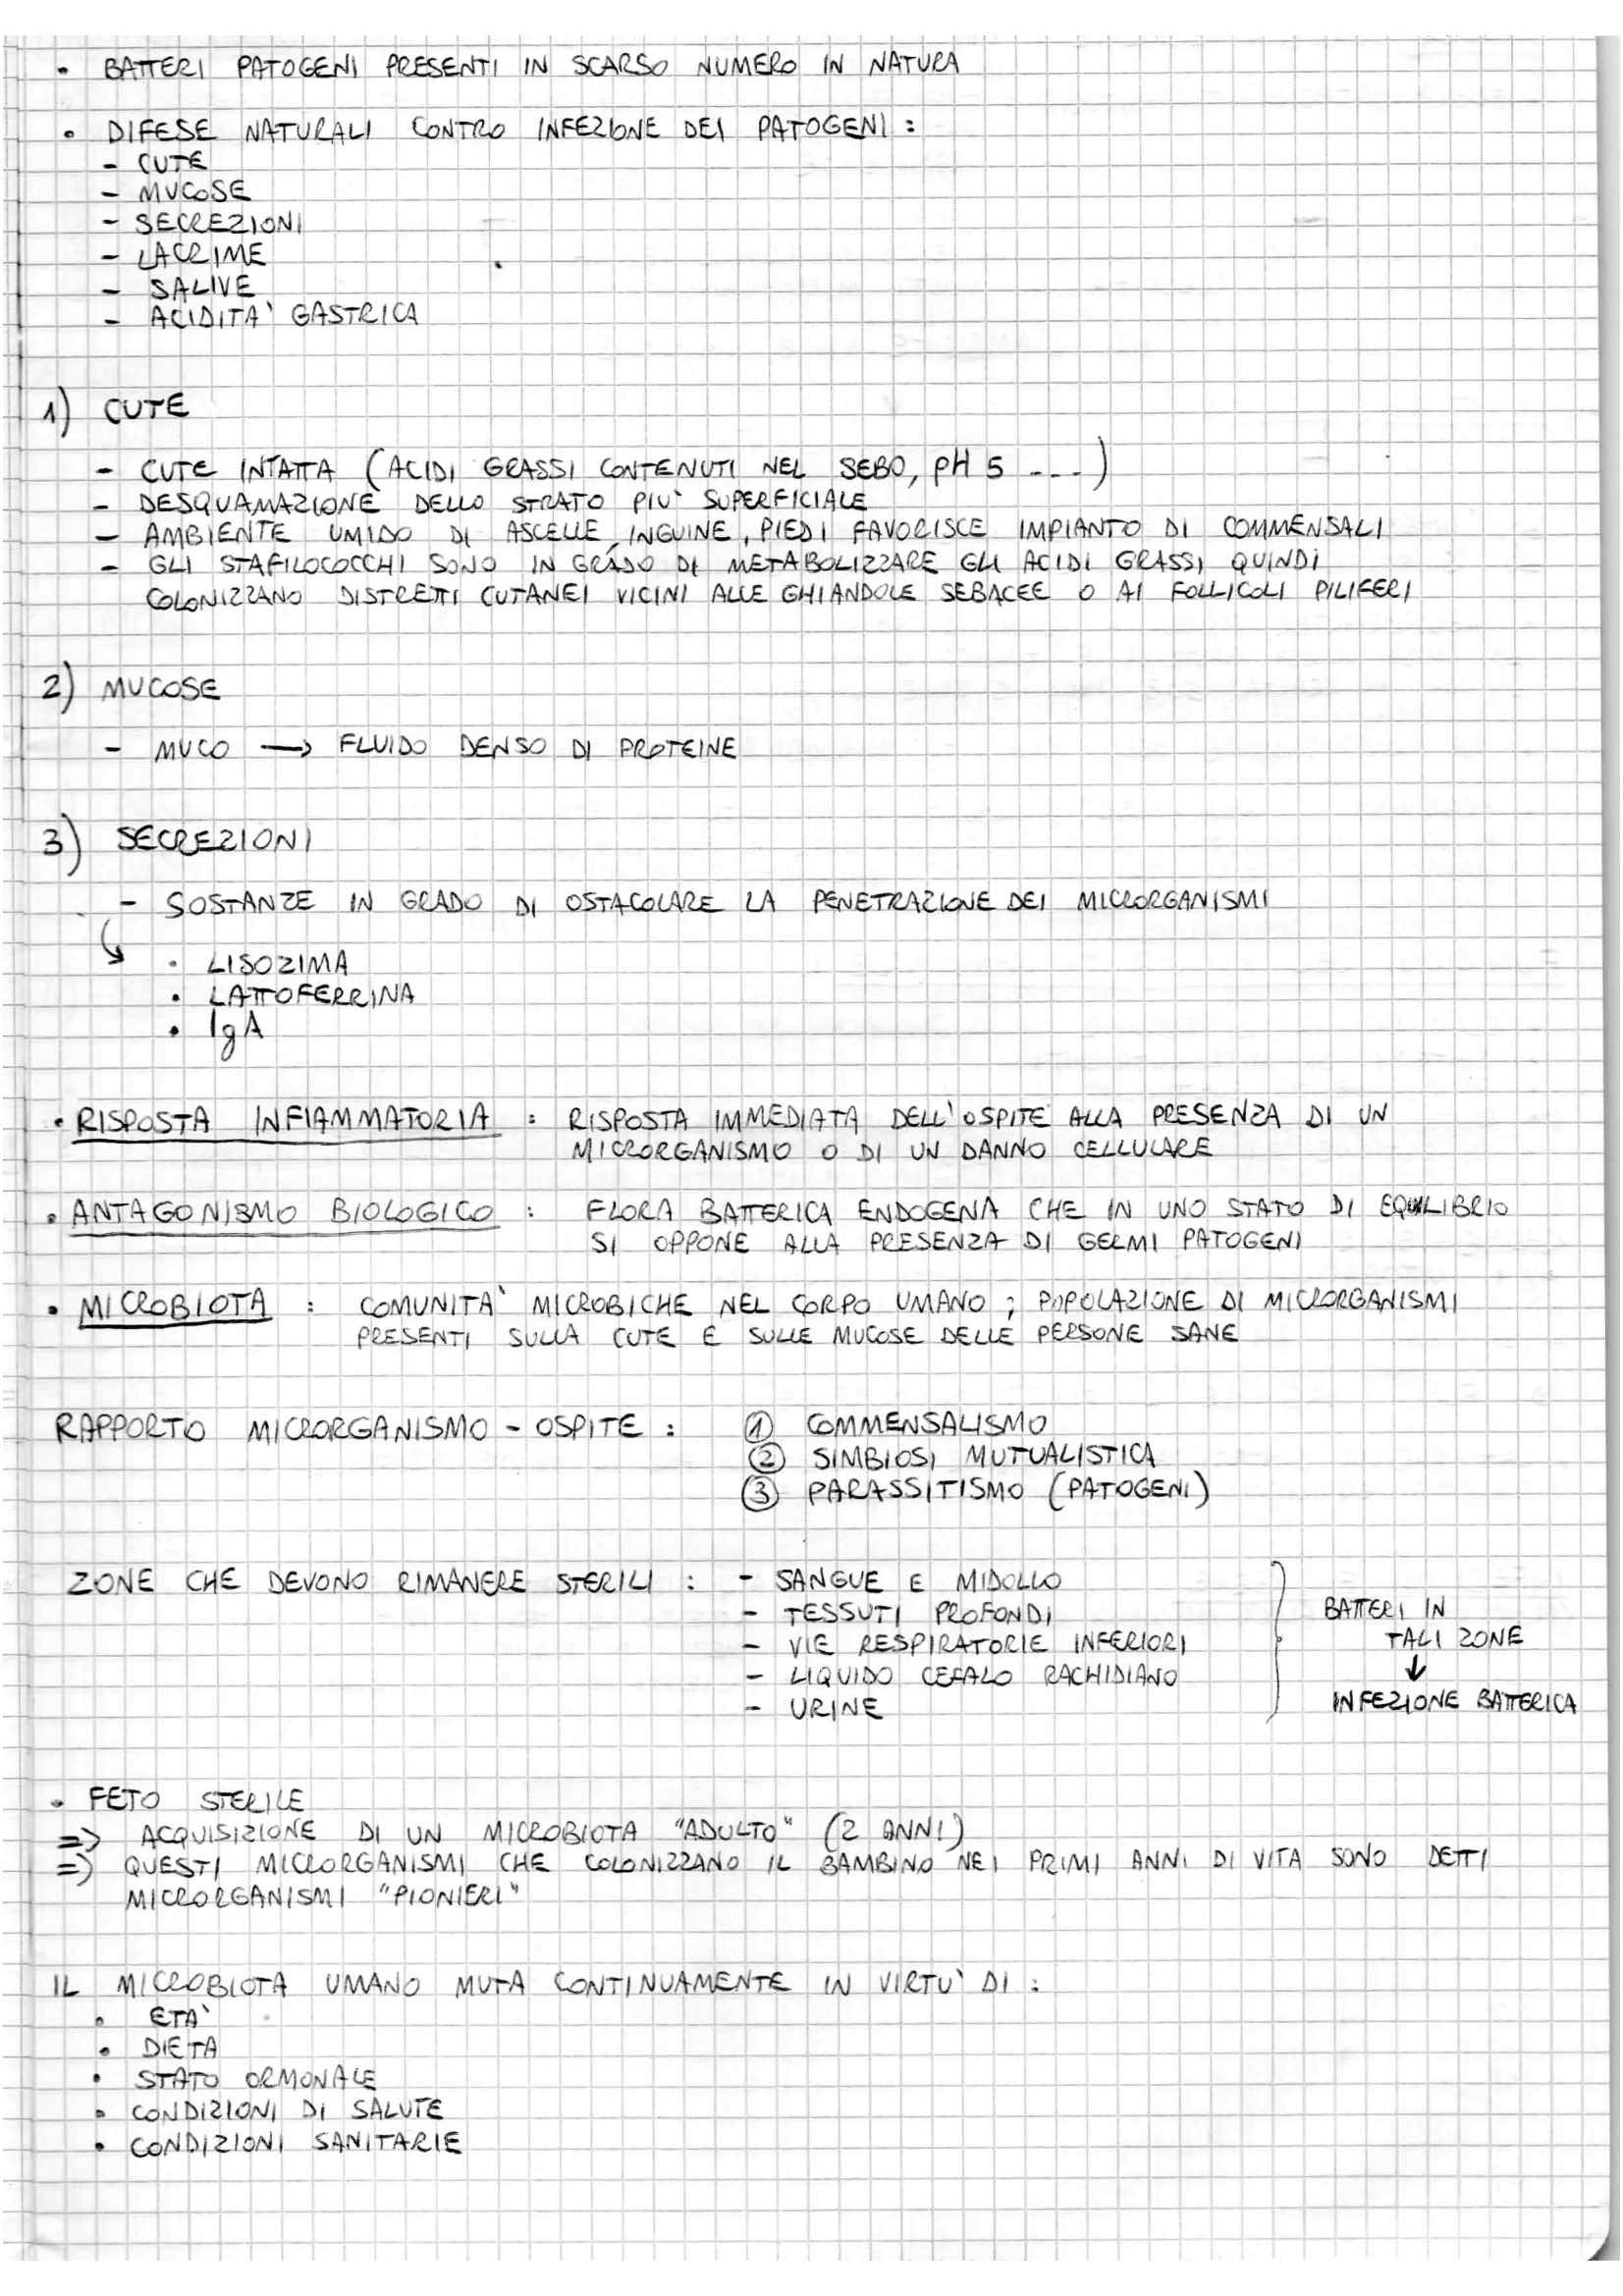 • BATTERI PATOGENI PRESENTI IN SCARSO NUMERO IN NATURA
• DIFESE NATURALI CONTRO INFEZIONE DEI PATOGENI :
- CUTE
- MUCOSE
- SECREZIONI
- LACRIME
- SALIVE
- ACIDITA' GASTRICA
1) CUTE
- CUTE INTATTA (ACIDI GRASSI CONTENUTI NEL SEBO, pH 5 ---)
- DESQUAMAZIONE DELLO STRATO PIU' SUPERFICIALE
- AMBIENTE UMIDO DI ASCELLE, INGUINE, PIEDI FAVORISCE IMPIANTO DI COMMENSALI
- GLI STAFILOCOCCHI SONO IN GRADO DI METABOLIZZARE GLI ACIDI GRASSI QUINDI
COLONIZZANO DISTRETTI CUTANEI VICINI ALLE GHIANDOLE SEBACEE O AI FOLLICOLI PILIFERI
2) MUCOSE
- MUCO → FLUIDO DENSO DI PROTEINE
3) SECREZIONI
- SOSTANZE IN GRADO DI OSTACOLARE LA PENETRAZIONE DEI MICRORGANISMI
• LISOZIMA
• LATTOFERRINA
• IgA
• RISPOSTA INFIAMMATORIA : RISPOSTA IMMEDIATA DELL'OSPITE ALLA PRESENZA DI UN
MICRORGANISMO O DI UN DANNO CELLULARE
• ANTAGONISMO BIOLOGICO : FLORA BATTERICA ENDOGENA CHE IN UNO STATO DI EQUILIBRIO
SI OPPONE ALLA PRESENZA DI GERMI PATOGENI
• MICROBIOTA : COMUNITA' MICROBICHE NEL CORPO UMANO ; POPOLAZIONE DI MICRORGANISMI
PRESENTI SULLA CUTE E SULLE MUCOSE DELLE PERSONE SANE
RAPPORTO MICRORGANISMO - OSPITE : ① COMMENSALISMO
② SIMBIOSI MUTUALISTICA
③ PARASSITISMO (PATOGENI)
ZONE CHE DEVONO RIMANERE STERILI : - SANGUE E MIDOLLO
- TESSUTI PROFONDI
- VIE RESPIRATORIE INFERIORI
- LIQUIDO CEFALO RACHIDIANO
- URINE
BATTERI IN
TALI ZONE
↓
INFEZIONE BATTERICA
• FETO STERILE
=> ACQUISIZIONE DI UN MICROBIOTA "ADULTO" (2 ANNI)
=> QUESTI MICRORGANISMI CHE COLONIZZANO IL BAMBINO NEI PRIMI ANNI DI VITA SONO DETTI
MICRORGANISMI "PIONIERI"
IL MICROBIOTA UMANO MUTA CONTINUAMENTE IN VIRTU' DI :
• ETA'
• DIETA
• STATO ORMONALE
• CONDIZIONI DI SALUTE
• CONDIZIONI SANITARIE